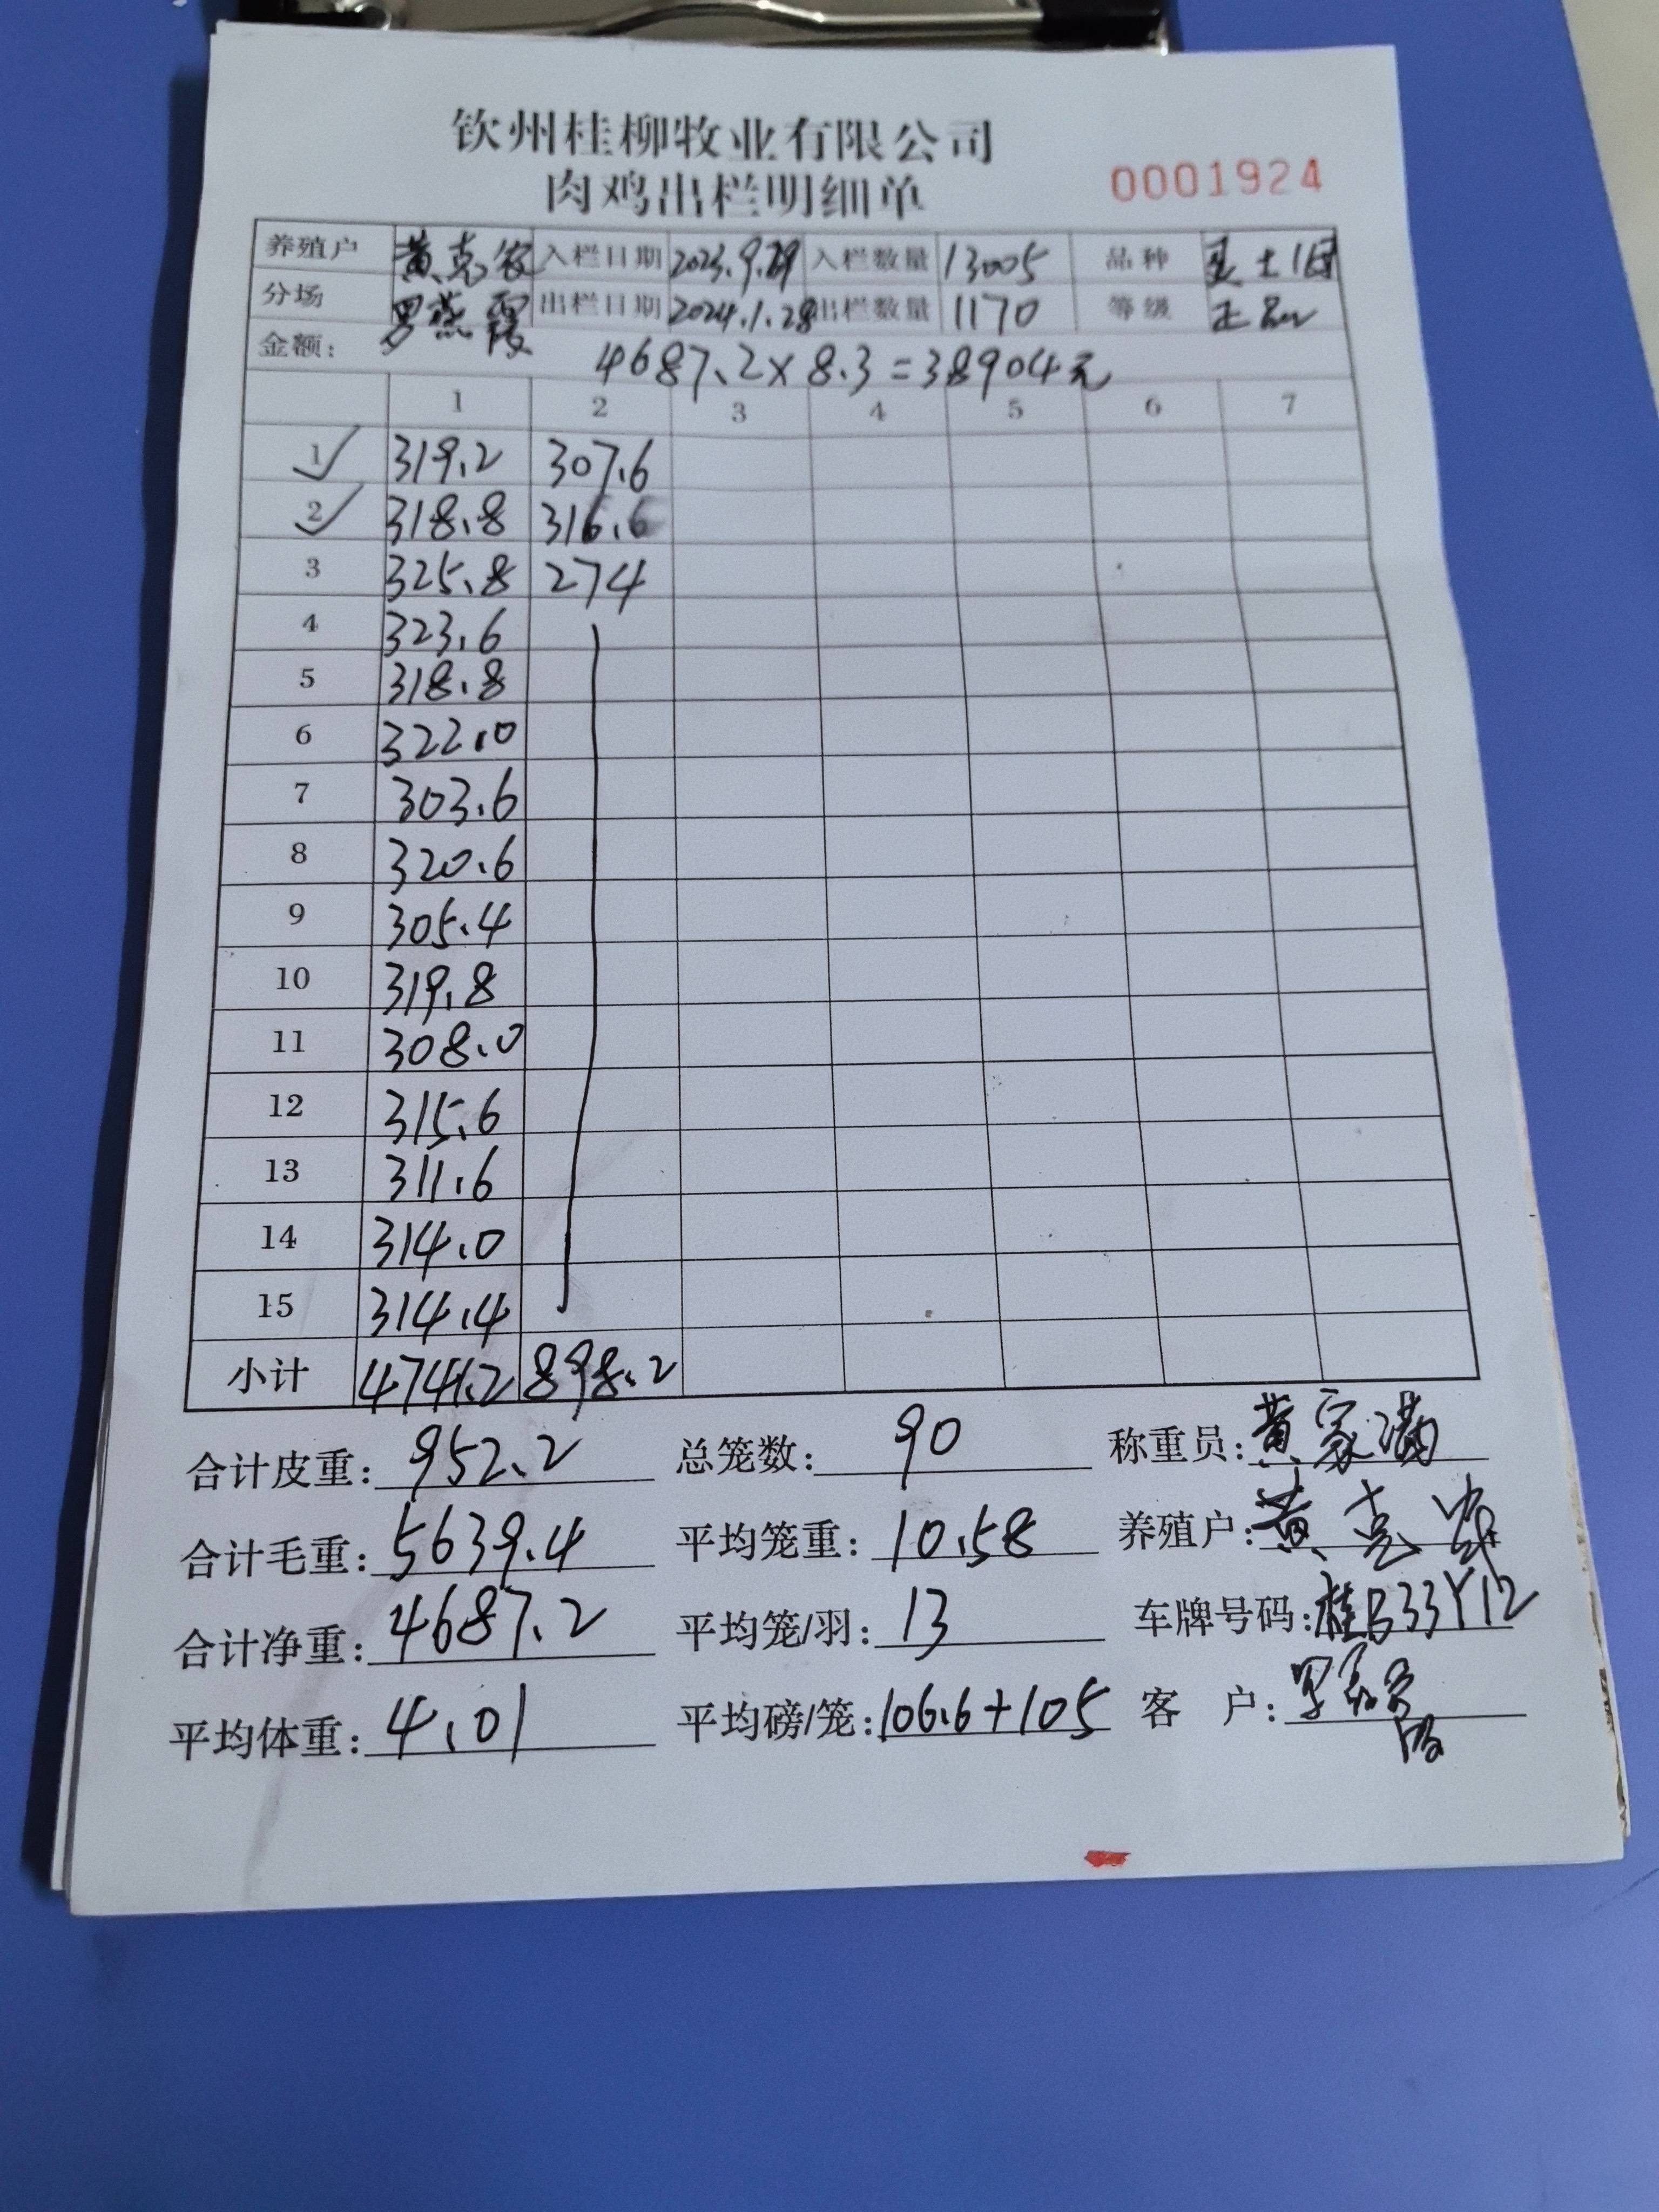 钦州桂柳牧业有限公司
肉鸡出栏明细单 0001924
养殖户 黄克农 入栏日期 2023.9.29 入栏数量 13005 品种 土1号
分场 罗燕霞 出栏日期 2024.1.28 出栏数量 1170 等级 正品
金额: 4687.2×8.3=38904元
1 2 3 4 5 6 7
1 319.2 307.6
2 318.8 316.6
3 325.8 274
4 323.6
5 318.8
6 322.0
7 303.6
8 320.6
9 305.4
10 319.8
11 308.0
12 315.6
13 311.6
14 314.0
15 314.4
小计 4741.2 898.2
合计皮重: 952.2 总笼数: 90 称重员: 黄家满
合计毛重: 5639.4 平均笼重: 10.58 养殖户: 黄克农
合计净重: 4687.2 平均笼/羽: 13 车牌号码: 桂B33Y12
平均体重: 4.01 平均磅/笼: 106.6+105 客 户: 罗燕霞